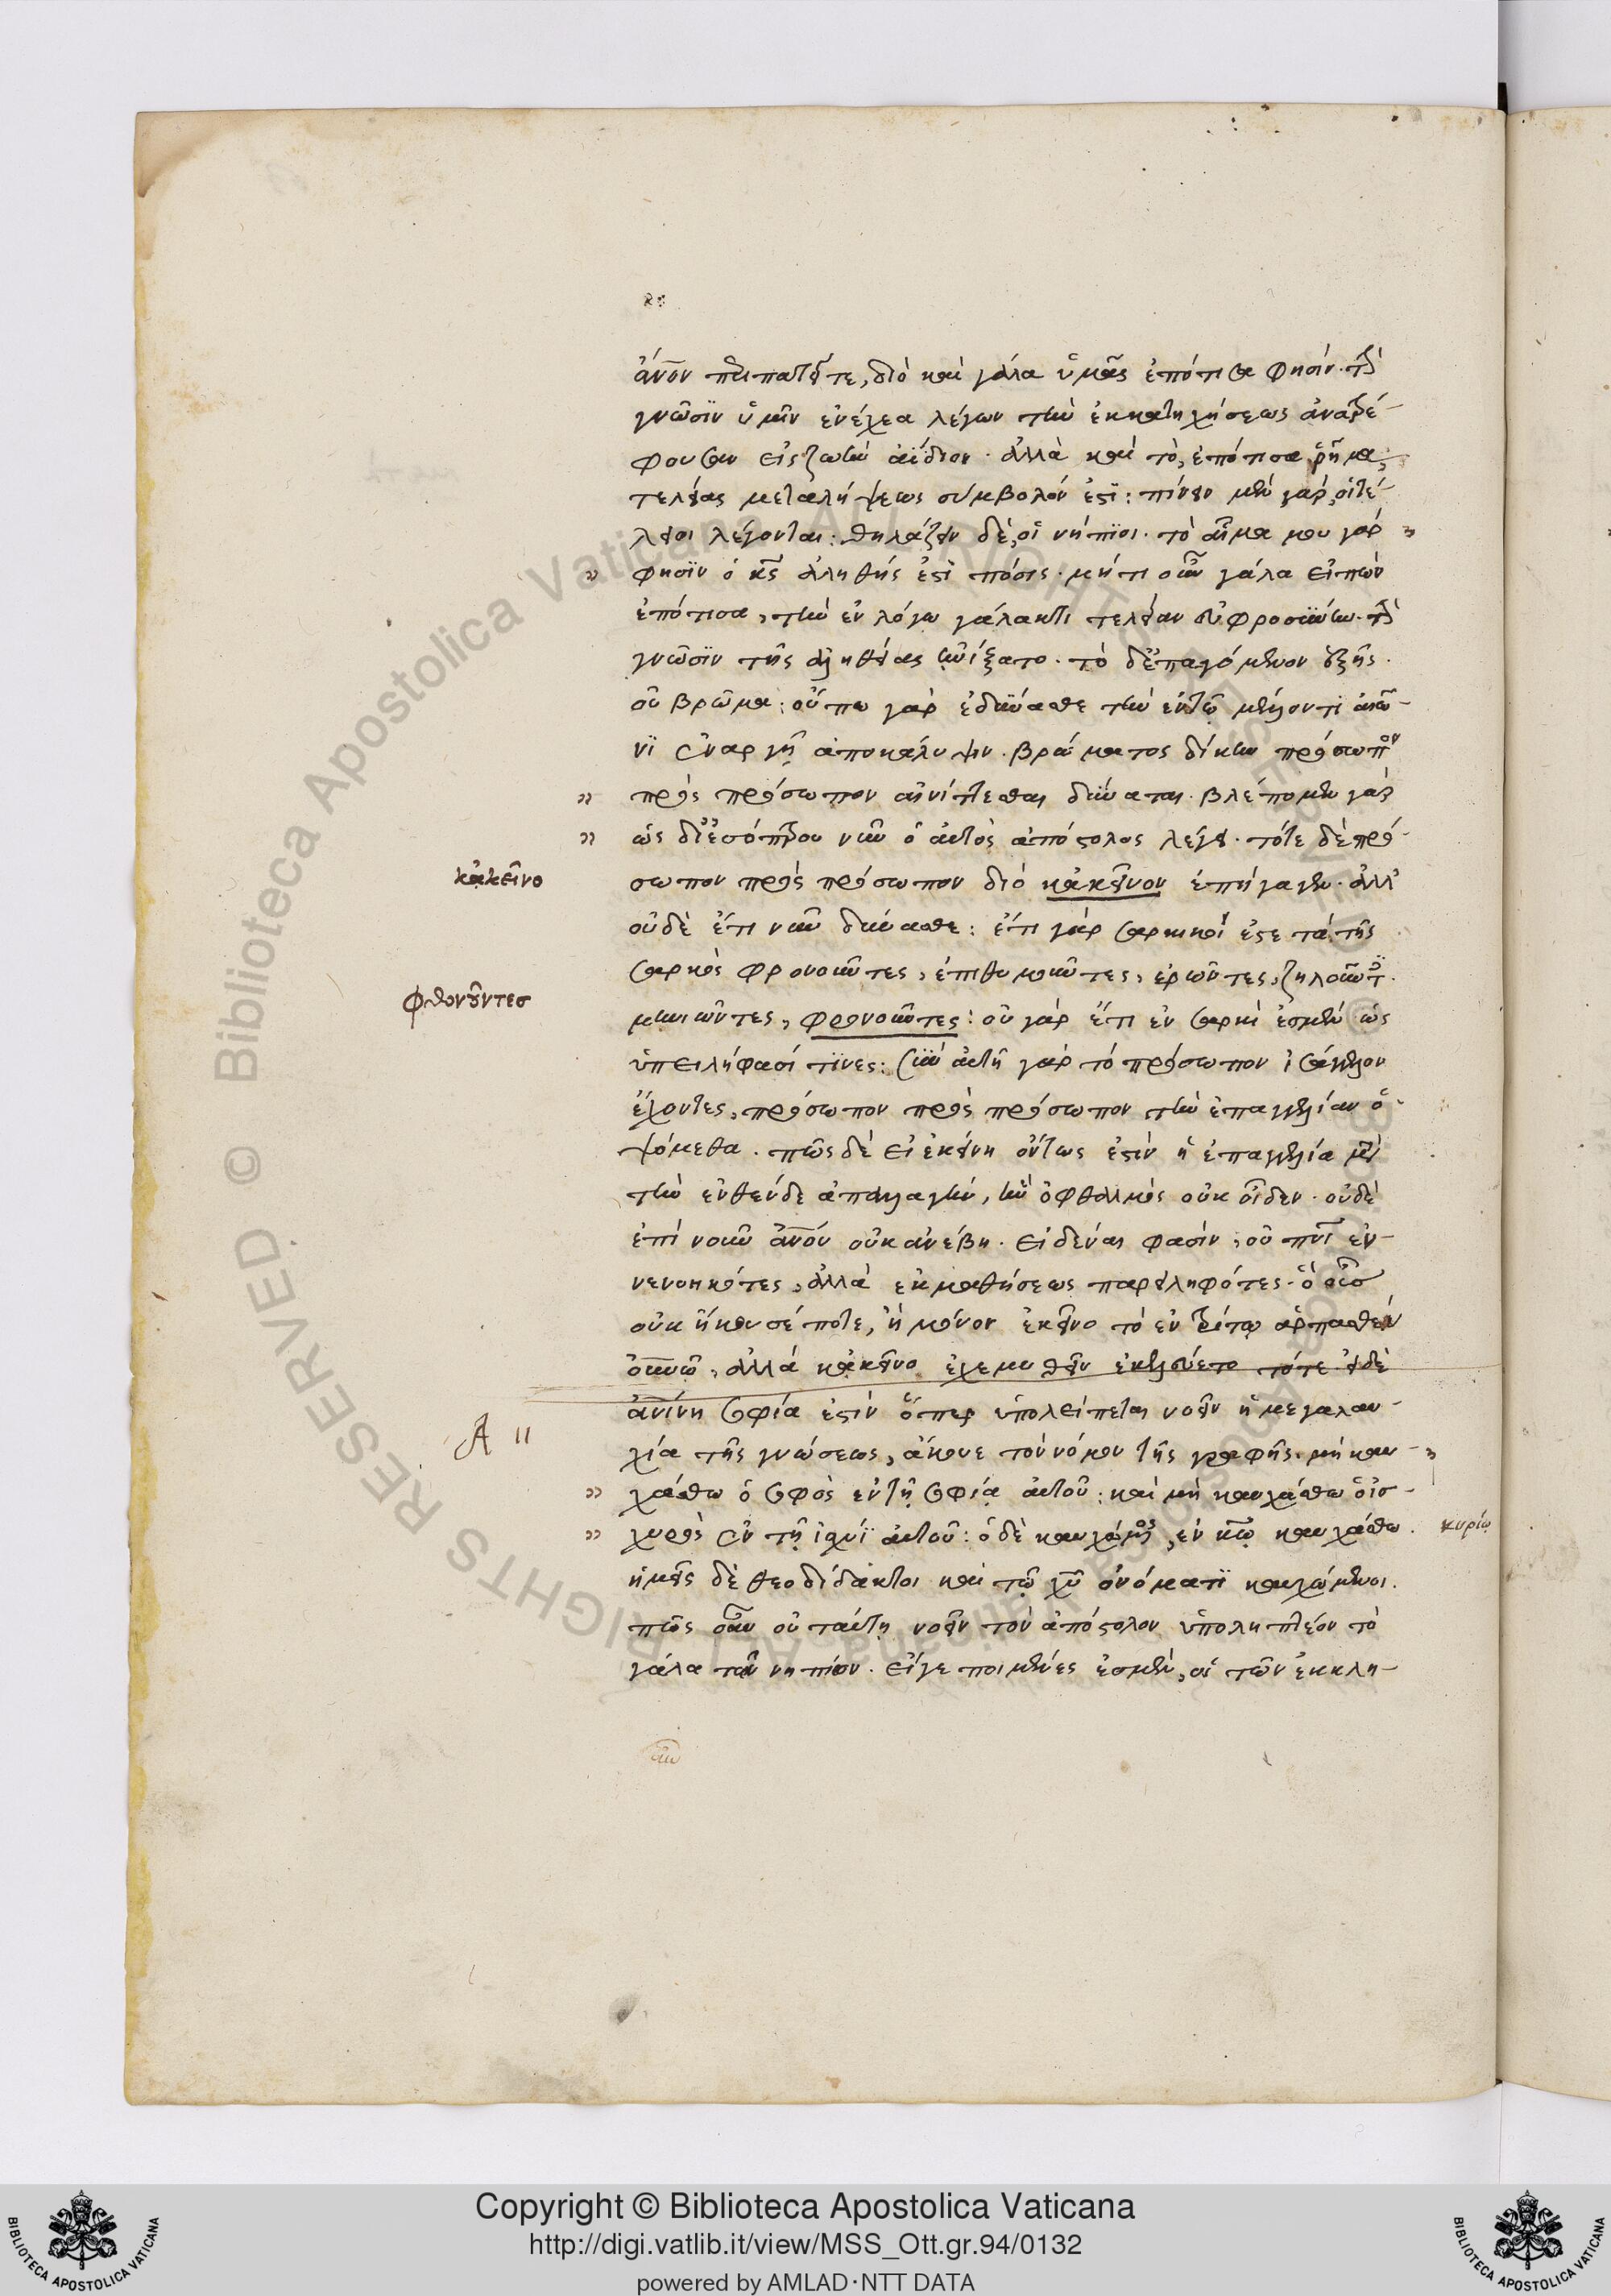 ἄνον περιπατεῖτε, διὸ καὶ γάλα ὑμᾶς ἐπότισα φησίν. τὴν
γνῶσϊν ὑμῖν ἐνέχεα λέγων τὴν ἐκ κατηχήσεως ἀνατρέ-
φουσαν εἰς ζωὴν ἀΐδιον. ἀλλὰ καὶ τὸ, ἐπότισα ῥῆμα,
τελείας μεταλήψεως σύμβολόν ἐστϊ: πίνειν μὲν γάρ, οἱ τέ-
λειοι λέγονται: θηλάζειν δὲ, οἱ νήπϊοι. τὸ αἷμα μου γάρ
φησϊν ὁ κς ἀληθής ἐστὶ πόσις. μήτι οὖν γάλα εἰπὼν
ἐπότισα, τὴν ἐν λόγω γάλακτι τελείαν εὐφροσύνην. τὴν
γνῶσϊν τῆς ἀληθείας ἠνίξατο. τὸ δ' ἐπαγόμενον ἑξῆς.
οὐ βρῶμα: οὔπω γὰρ ἐδύνασθε τὴν ἐν τῷ μέλλοντι αἰῶ-
νϊ ἐναργῆ ἀποκάλυψιν. βρώματος δίκην πρόσωπον
πρὸς πρόσωπον αἰνίττεσθαι δύναται. βλέπομεν γὰρ
ὡς δι' ἐσόπτρου νῦν ὁ αὐτὸς ἀπόστολος λέγει. τότε δὲ πρό-
κἀκεῖνο
σωπον πρὸς πρόσωπον διὸ κἀκεῖνον ἐπήγαγεν. ἀλλ'
οὐδὲ ἔτι νῦν δύνασθε: ἔτι γὰρ σαρκικοί ἐστε τὰ τῆς
σαρκὸς φρονοῦντες, ἐπιθυμοῦντες, ἐρῶντες, ζηλοῦντ.
φθονοῦντεσ
μηνιῶντες, φρονοῦντες: οὐ γὰρ ἔτι ἐν σαρκὶ ἐσμὲν ὡς
ὑπειλήφασί τϊνες: σὺν αὐτῆ γὰρ τὸ πρόσωπον ἰσάγγελον
ἔχοντες, πρόσωπον πρὸς πρόσωπον τὴν ἐπαγγελίαν ὀ-
ψόμεθα. πῶς δὲ εἰ ἐκείνη ὄντως ἐστὶν ἡ ἐπαγγελία μετὰ
τὴν ἐνθένδε ἀπαλλαγὴν, ἣν ὀφθαλμὸς οὐκ οἶδεν. οὐδὲ
ἐπί νοῦν ἀνόν οὐκ ἀνέβη. εἰδέναι φασὶν, οὐ πνὶ ἐν-
νενοηκότες, ἀλλὰ ἐκ μαθήσεως παρειληφότες. ὃ οὖσ
οὐκ ἤκουσέ ποτε, ἢ μόνον ἐκεῖνο τὸ ἐν τρίτῳ ἁρπασθὲν
οὐνῶ, ἀλλὰ κἀκεῖνο ἐχεμυθεῖν ἐκελεύετο τότε. εἰ δὲ
ἀνίνη σοφία ἐστὶν ὅπερ ὑπολείπεται νοεῖν ἡ μεγαλαυ-
A
χία τῆς γνώσεως, ἄκουε τὸν νόμον τῆς γραφῆς. μὴ καυ-
χάσθω ὁ σοφὸς ἐν τῇ σοφίᾳ αὐτοῦ: καὶ μὴ καυχάσθω ὁ ἰσ-
χυρὸς ἐν τῇ ἰσχύϊ αὐτοῦ: ὁ δὲ καυχώμενος, ἐν κῶ καυχάσθω.
κυρίῳ
ἡμεῖς δὲ θεοδίδακτοι καὶ τῷ χῦ ὀνόματϊ καυχώμενοι.
πῶς οὖν οὐ ταύτῃ νοεῖν τὸν ἀπόστολον ὑποληπτέον τὸ
γάλα τῶν νηπίων. εἴγε ποιμένες ἐσμὲν, οἱ τῶν ἐκκλη-
Copyright © Biblioteca Apostolica Vaticana
http://digi.vatlib.it/view/MSS_Ott.gr.94/0132
powered by AMLAD·NTT DATA